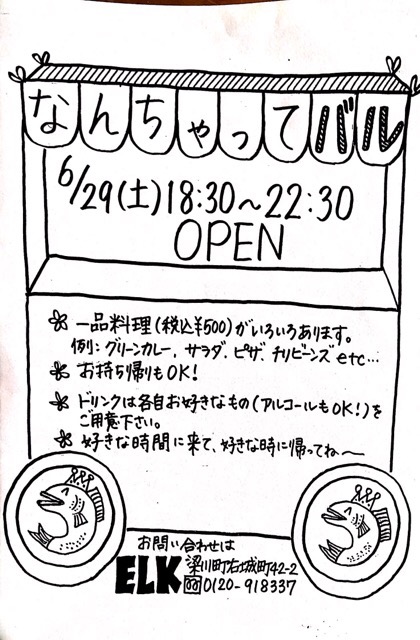 なんちゃってバル
6/29(土)18:30〜22:30
OPEN
一品料理(税込¥500)がいろいろあります。
例: グリーンカレー, サラダ, ピザ, チリビーンズ etc…
お持ち帰りもOK!
ドリンクは各自お好きなもの(アルコールもOK!)を
ご用意下さい。
好きな時間に来て、好きな時に帰ってね〜
お問い合わせは
ELK 梁川町右城町42-2
0120-918337